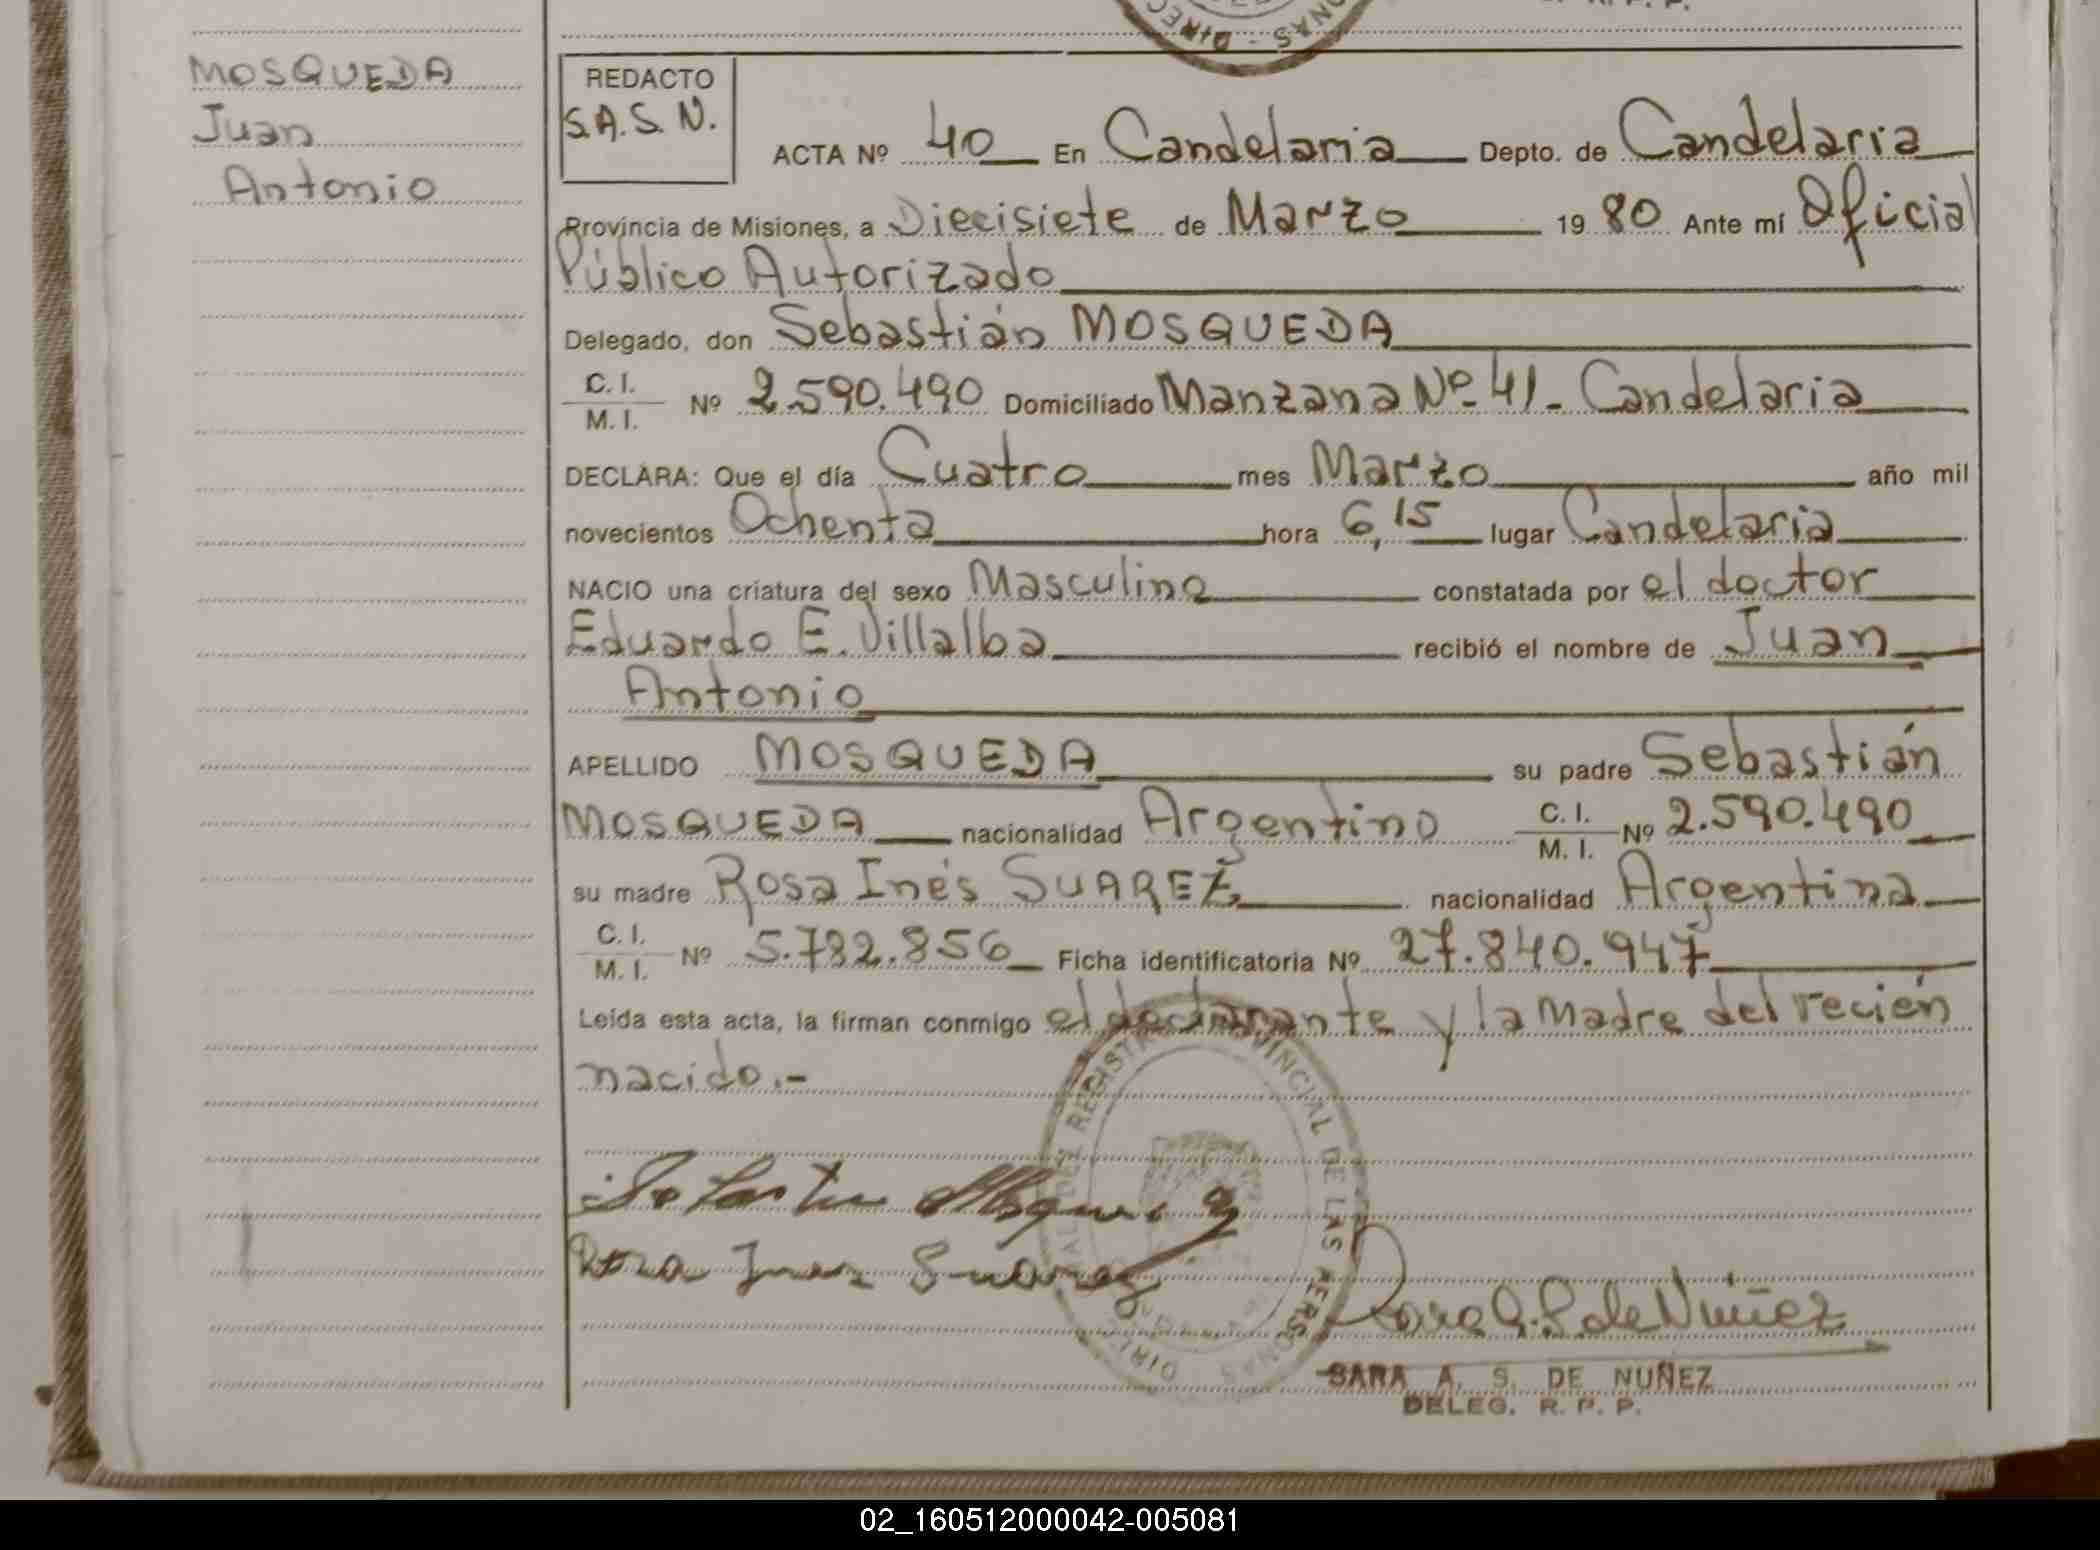 MOSQUEDA
Juan
Antonio
REDACTO
S.A.S.N.
ACTA Nº 40 En Candelaria Depto. de Candelaria
Provincia de Misiones, a Diecisiete de Marzo 19 80 Ante mí Oficial
Público Autorizado
Delegado, don Sebastián MOSQUEDA
C. I.
M. I.
Nº 2.590.490 Domiciliado Manzana Nº 41 - Candelaria
DECLARA: Que el día Cuatro mes Marzo año mil
novecientos Ochenta hora 6,15 lugar Candelaria
NACIO una criatura del sexo Masculino constatada por el doctor
Eduardo E. Villalba recibió el nombre de Juan
Antonio
APELLIDO MOSQUEDA su padre Sebastián
MOSQUEDA nacionalidad Argentino C. I. M. I. Nº 2.590.490
su madre Rosa Inés SUAREZ nacionalidad Argentina
C. I.
M. I.
Nº 5.782.856 Ficha identificatoria Nº 27.840.947
Leída esta acta, la firman conmigo el declarante y la Madre del recién
nacido.-
DEL REGISTRO PROVINCIAL DE LAS PERSONAS
Rosa Inez Suarez
Sara A. S. de Núñez
SARA A. S. DE NUÑEZ
DELEG. R. P. P.
02_160512000042-005081